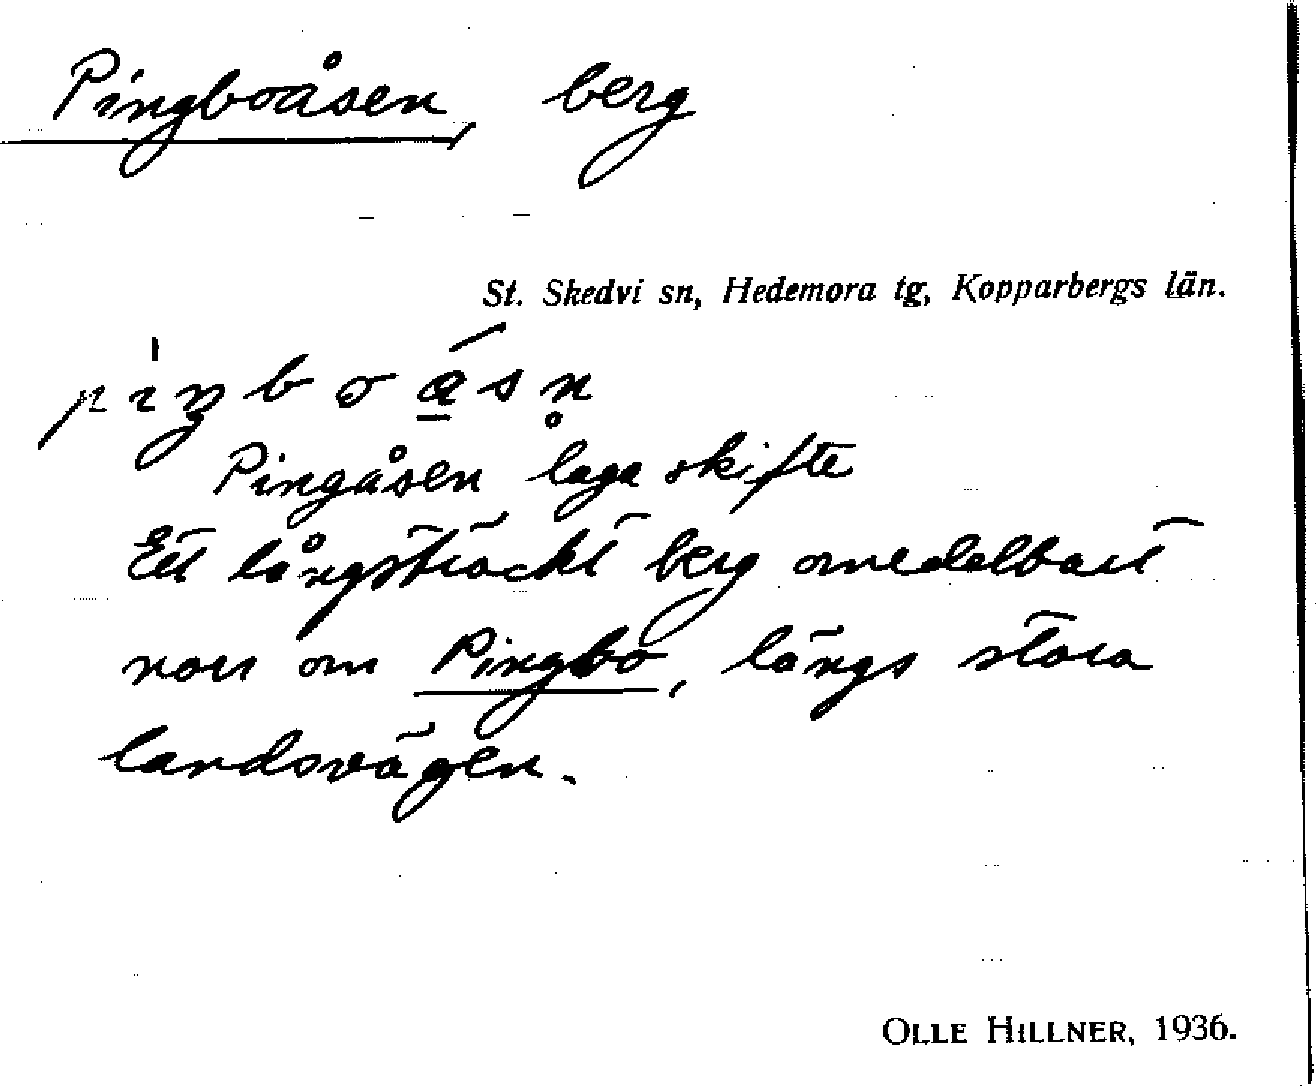 Pingboåsen, berg
St. Skedvi sn, Hedemora tg, Kopparbergs län.
Pingåsen laga skifte
Ett långsträckt berg omedelbart
norr om Pingbo, längs stora
landsvägen.
OLLE HILLNER, 1936.